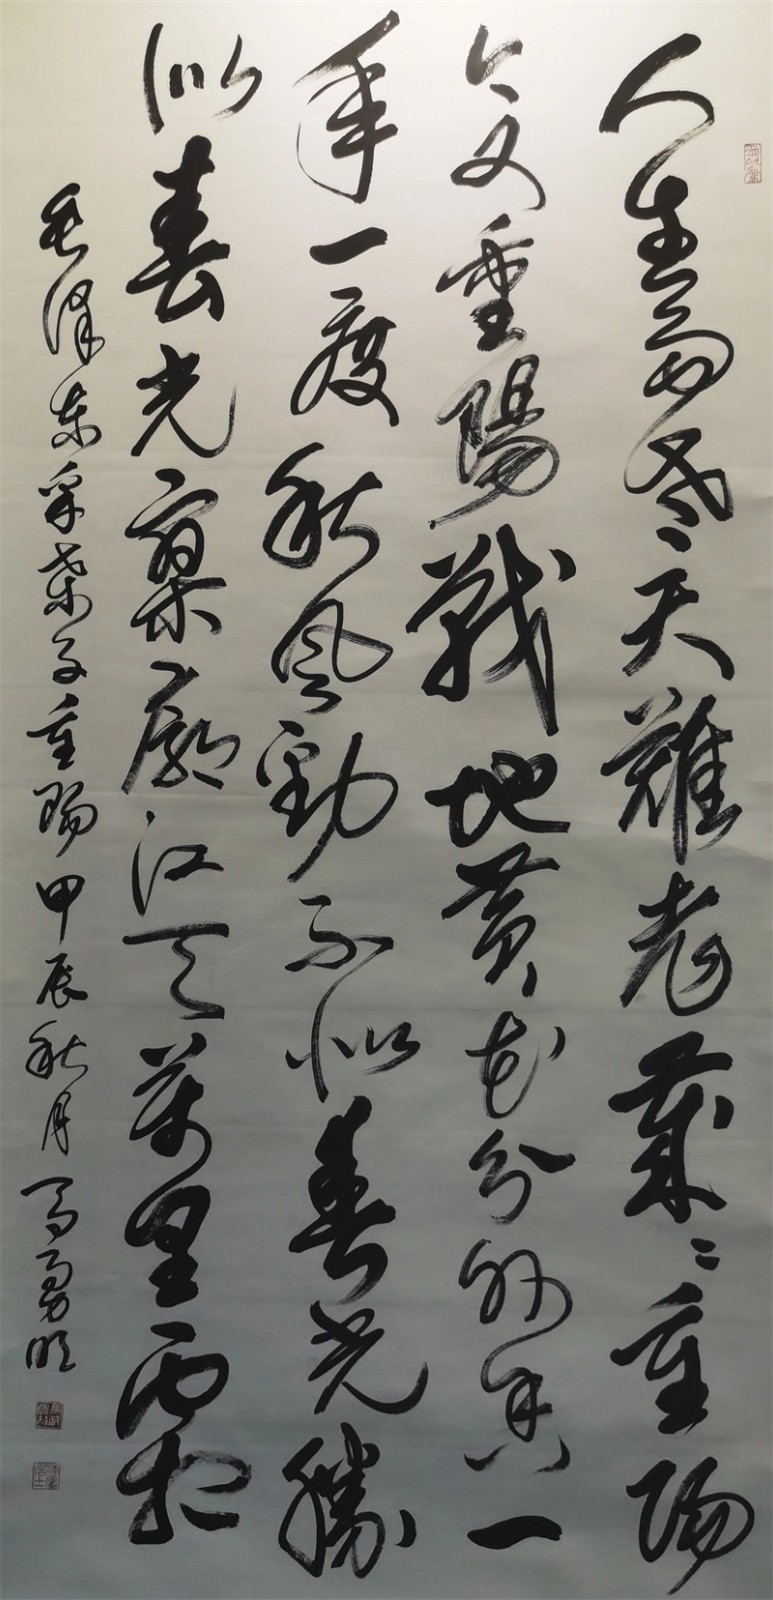 人生易老天難老歲〻重陽
今又重陽戰地黃花分外香一
年一度秋風勁不似春光勝
似春光寥廓江天萬里霜
毛澤東采桑子重陽甲辰秋月